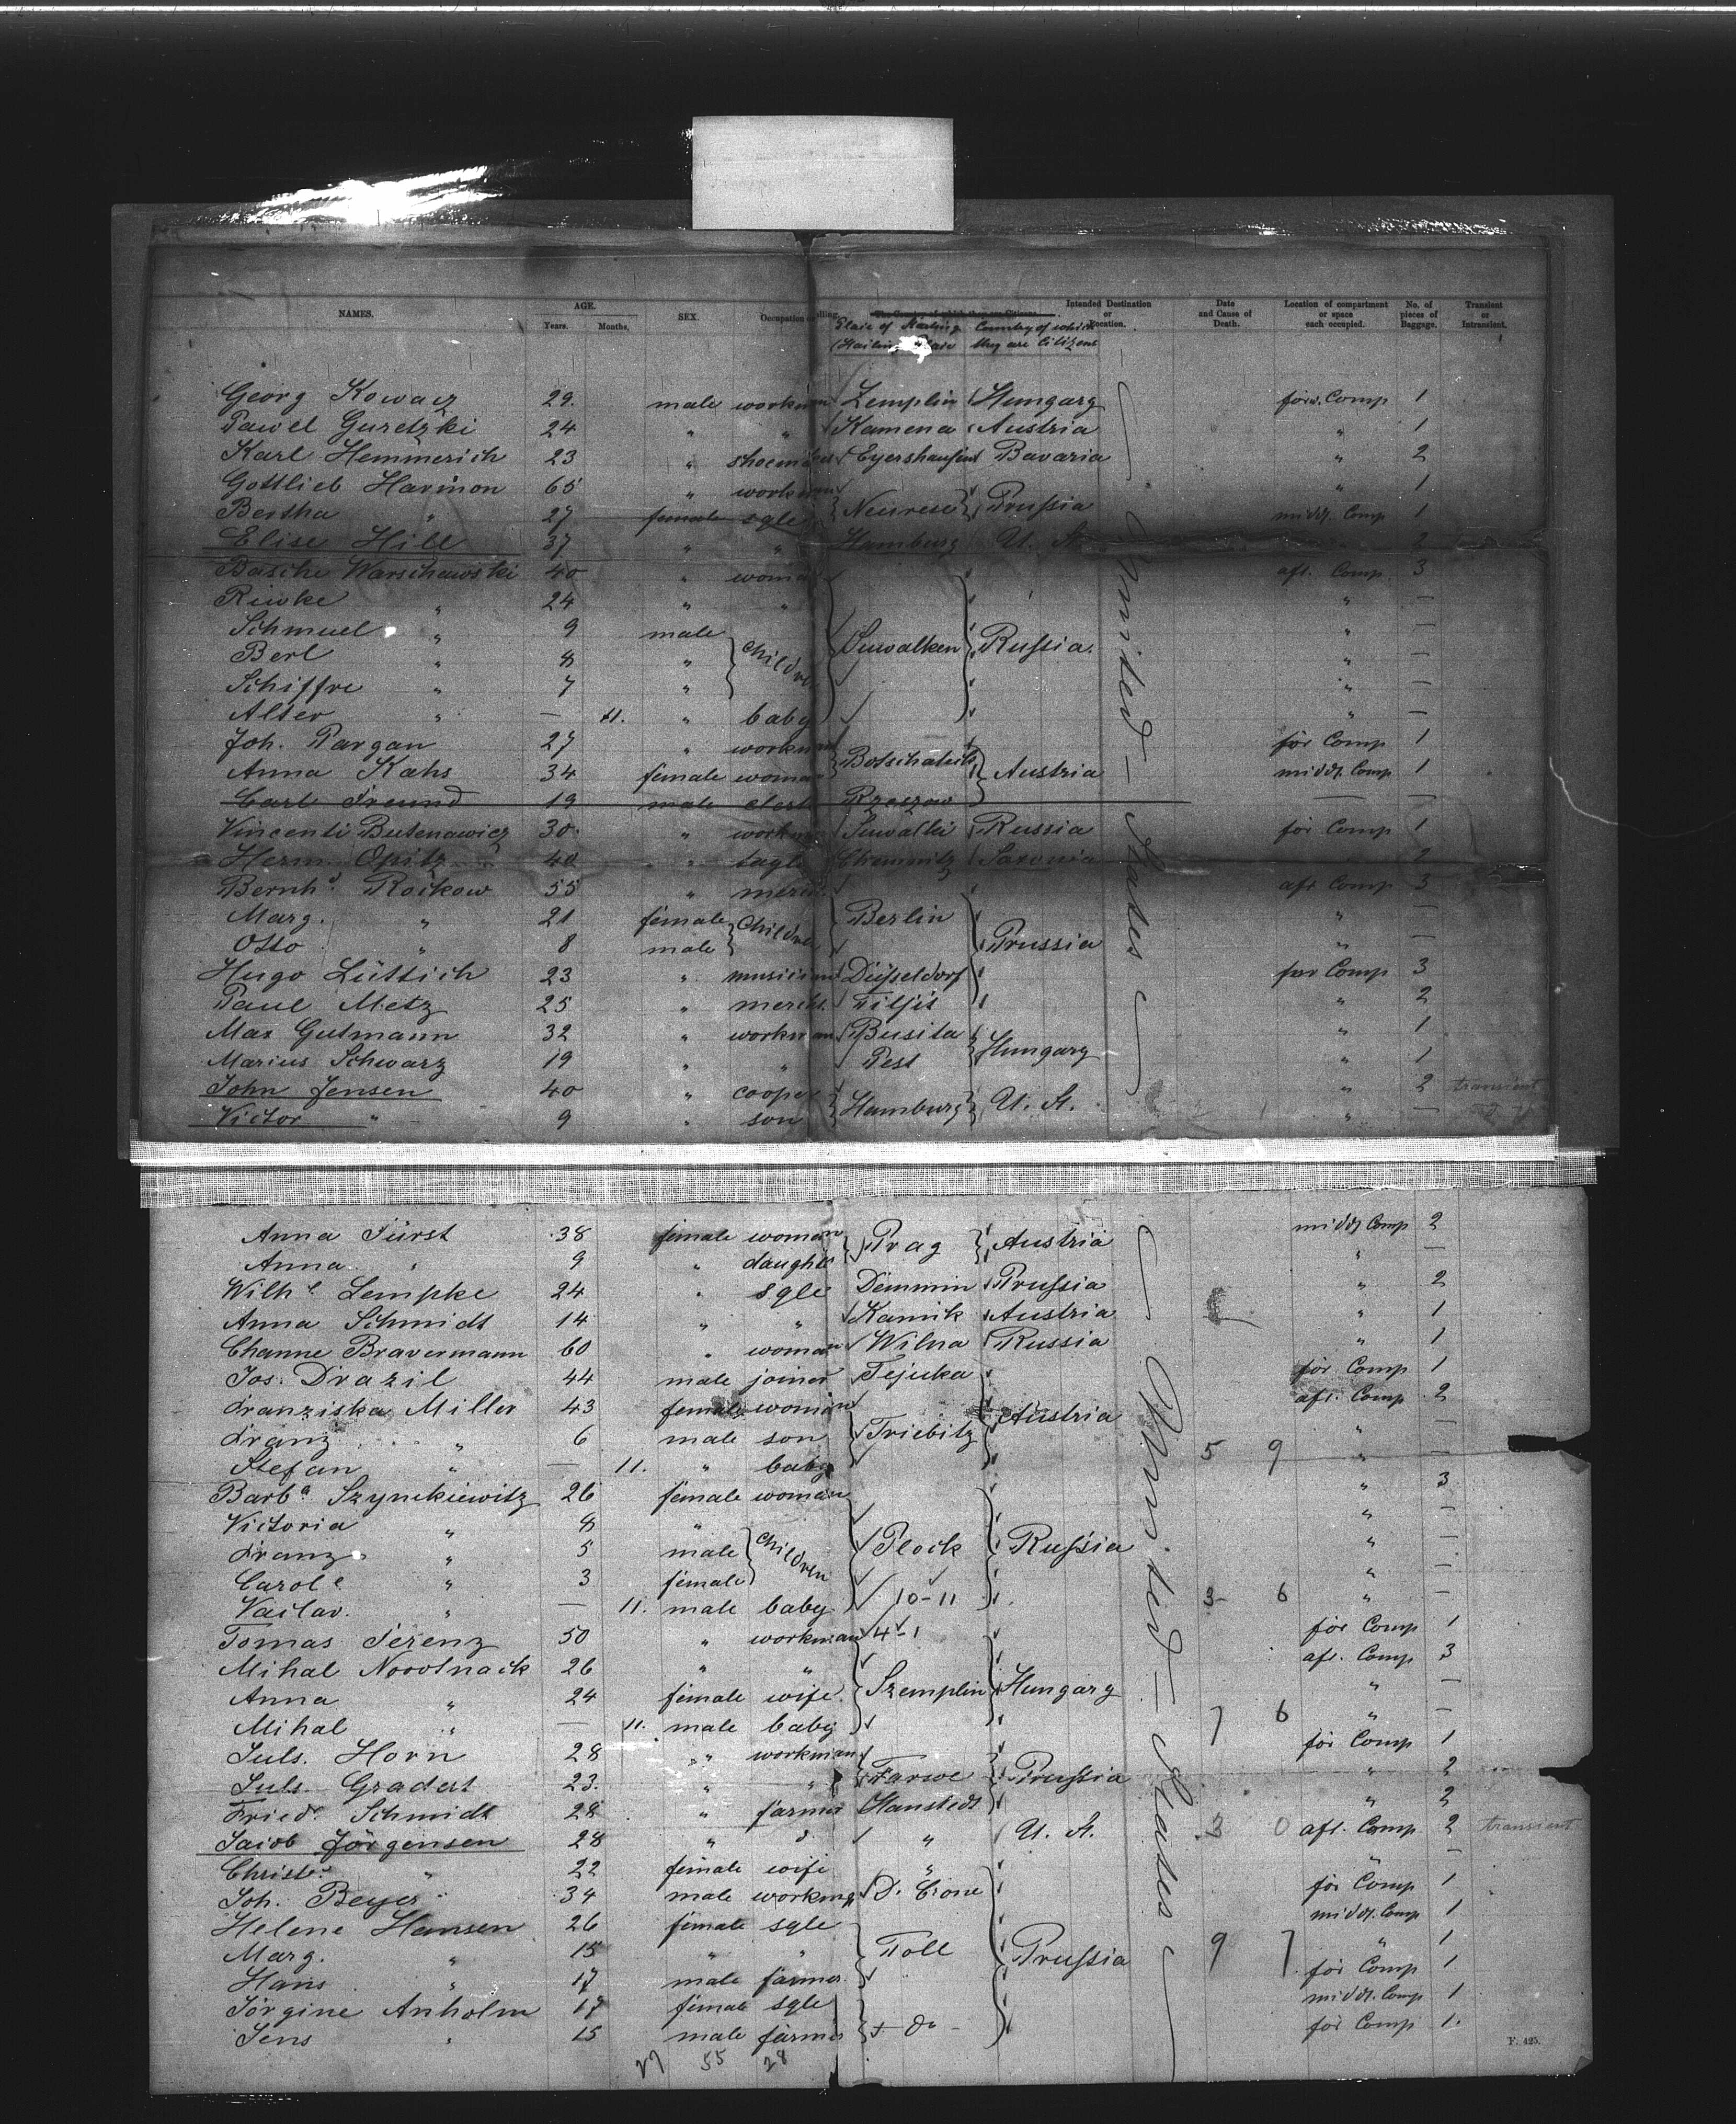 NAMES. AGE. Years. Months. SEX. Occupation or Calling. The Country of which they are Citizens. Intended Destination or Location. Date and Cause of Death. Location of compartment or space each occupied. No. of pieces of Baggage. Transient or Intransient.
Place of Starting Country of which they are Citizens
Georg Kowacz 29. male workman Zemplin Hungary forw. Comp 1
Pawel Guretzki 24 " " Kamena Austria " 1
Karl Hemmerich 23 " shoemker Eyershausen Bavaria " 2
Gottlieb Harmon 65 " workman " 1
Bertha " 27 female sgle Neurese Prussia middl. Comp 1
Elise Hill 37 " " Hamburg U. St. 2
Basche Warschawski 40 " woman aft. Comp 3
Riwke " 24 " " " —
Schmuel " 9 male " —
Berl " 8 " Children Suwalken Russia. " —
Schiffre " 7 " " —
Alter " — 11. " baby " —
Joh. Pargan 27 " workman for Comp 1
Anna Kahs 34 female woman Austria middl. Comp 1
Carl Freund 19 male clerk Rzeszow — —
Vincenti Butenawicz 30. " workman Suwalki Russia for Comp 1
Herm. Opitz 40 " Chemnitz Saxonia 2
Bernhd. Rockow 55 " merch aft Comp 3
Marg. " 21 female Children Berlin " —
Otto " 8 male Prussia " —
Hugo Lüttich 23 " musician Düsseldorf for Comp 3
Paul Metz 25 " mercht. Tilsit " 2
Max Gutmann 32 " workman Busita " 1
Marius Schwarz 19 " " Pest Hungary " 1
John Jensen 40 " cooper " 2 transient
Victor " 9 " son Hamburg U. St. " —
United States
Anna Fürst 38 female woman Prag Austria middl Comp 2
Anna " 9 " daughter " —
Wilhe Lempke 24 " sgle Demmin Prussia " 2
Anna Schmidt 14 " " Kamik Austria " 1
Channe Bravermann 60 " woman Wilna Russia " 1
Jos. Drazil 44 male joiner Tejuka for Comp 1
Franziska Miller 43 female woman Austria aft. Comp 2
Franz " 6 male son Triebitz " —
Stefan " — 11. " baby 5 9 " —
Barba Szynckiewitz 26 female woman " 3
Victoria " 8 " " —
Franz " 5 male Children Plock Russia " —
Carole " 3 female " —
Vaclav. " — 11. male baby 10-11 3 6 " —
Tomas Ferenz 50 " workman 4-1 for Comp 1
Mihal Novotnack 26 " " aft. Comp 3
Anna " 24 female wife Szemplin Hungary " —
Mihal " — 11. male baby 7 6 " —
Juls. Horn 28 " workman for Comp 1
Juls. Gradert 23. " " Farwe Prussia " 2
Friedr. Schmidt 28 " farmer Hanstedt " 2
Jacob Jörgensen 28 " " " U. St. 3 0 aft. Comp 2 transient
Christe. " 22 female wife " " —
Joh. Beyer 34 male workmn D. Crone for Comp 1
Helene Hansen 26 female sgle middl. Comp 1
Marg. " 15 " " Toll Prussia 9 7 " 1
Hans " 17 male farmer for Comp 1
Jörgine Anholm 17 female sgle middl. Comp 1
Jens " 15 male farmer do for Comp 1.
United States
27 55 28
F. 425.